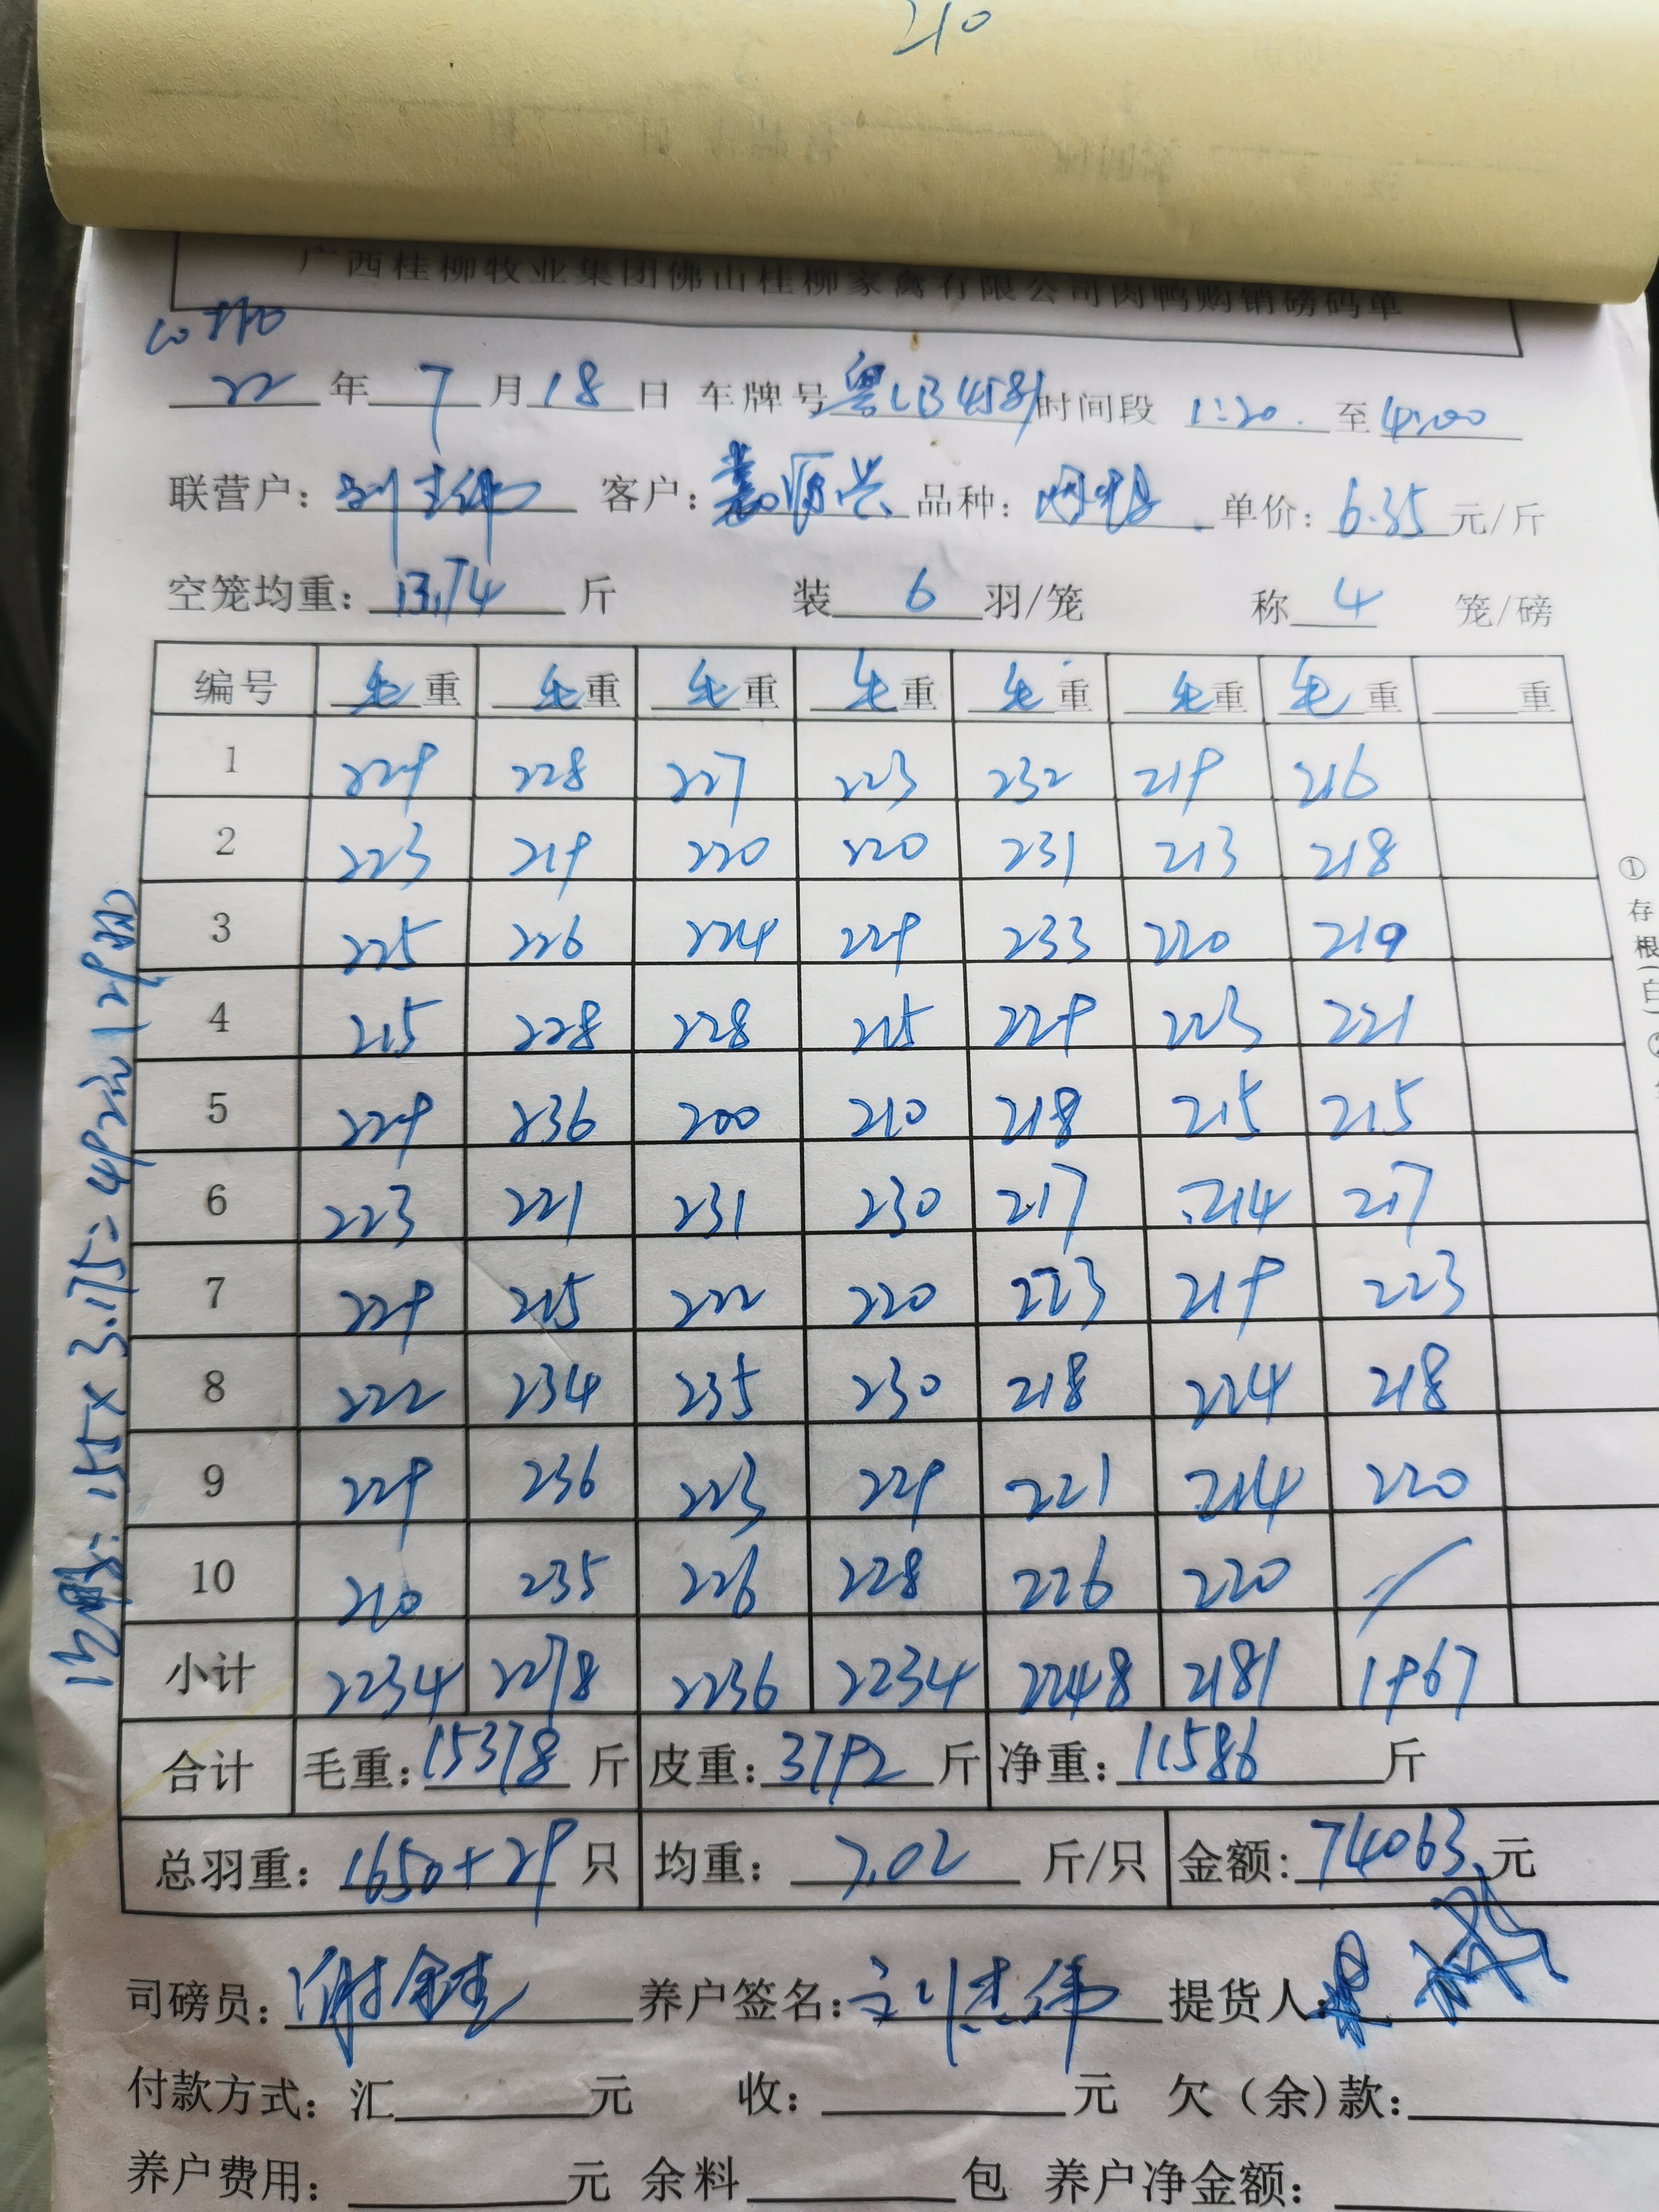 210
广西桂柳牧业集团佛山桂柳家禽有限公司肉鸭购销磅码单
22 年 7 月 18 日 车牌号 粤LB4581 时间段 1:20 至 4:00
联营户: 刘志伟 客户: 品种: 单价: 6.35 元/斤
空笼均重: 13.74 斤 装 6 羽/笼 称 4 笼/磅
编号 毛重 毛重 毛重 毛重 毛重 毛重 毛重 重
1 229 228 227 223 232 219 216
2 223 219 220 220 231 213 218
3 225 226 224 229 233 220 219
4 215 228 228 215 229 223 221
5 229 236 200 210 218 215 215
6 223 221 231 230 217 214 217
7 229 215 222 220 223 219 223
8 222 234 235 230 218 224 218
9 229 236 223 229 221 214 220
10 210 235 226 228 226 220 /
小计 2234 2278 2236 2234 2248 2181 1967
合计 毛重: 15378 斤 皮重: 3792 斤 净重: 11586 斤
总羽重: 1650+29 只 均重: 7.02 斤/只 金额: 74063 元
司磅员: 养户签名: 刘志伟 提货人:
付款方式: 汇 元 收: 元 欠(余)款:
养户费用: 元 余料 包 养户净金额:
155×3.175=492元
①存根(白)